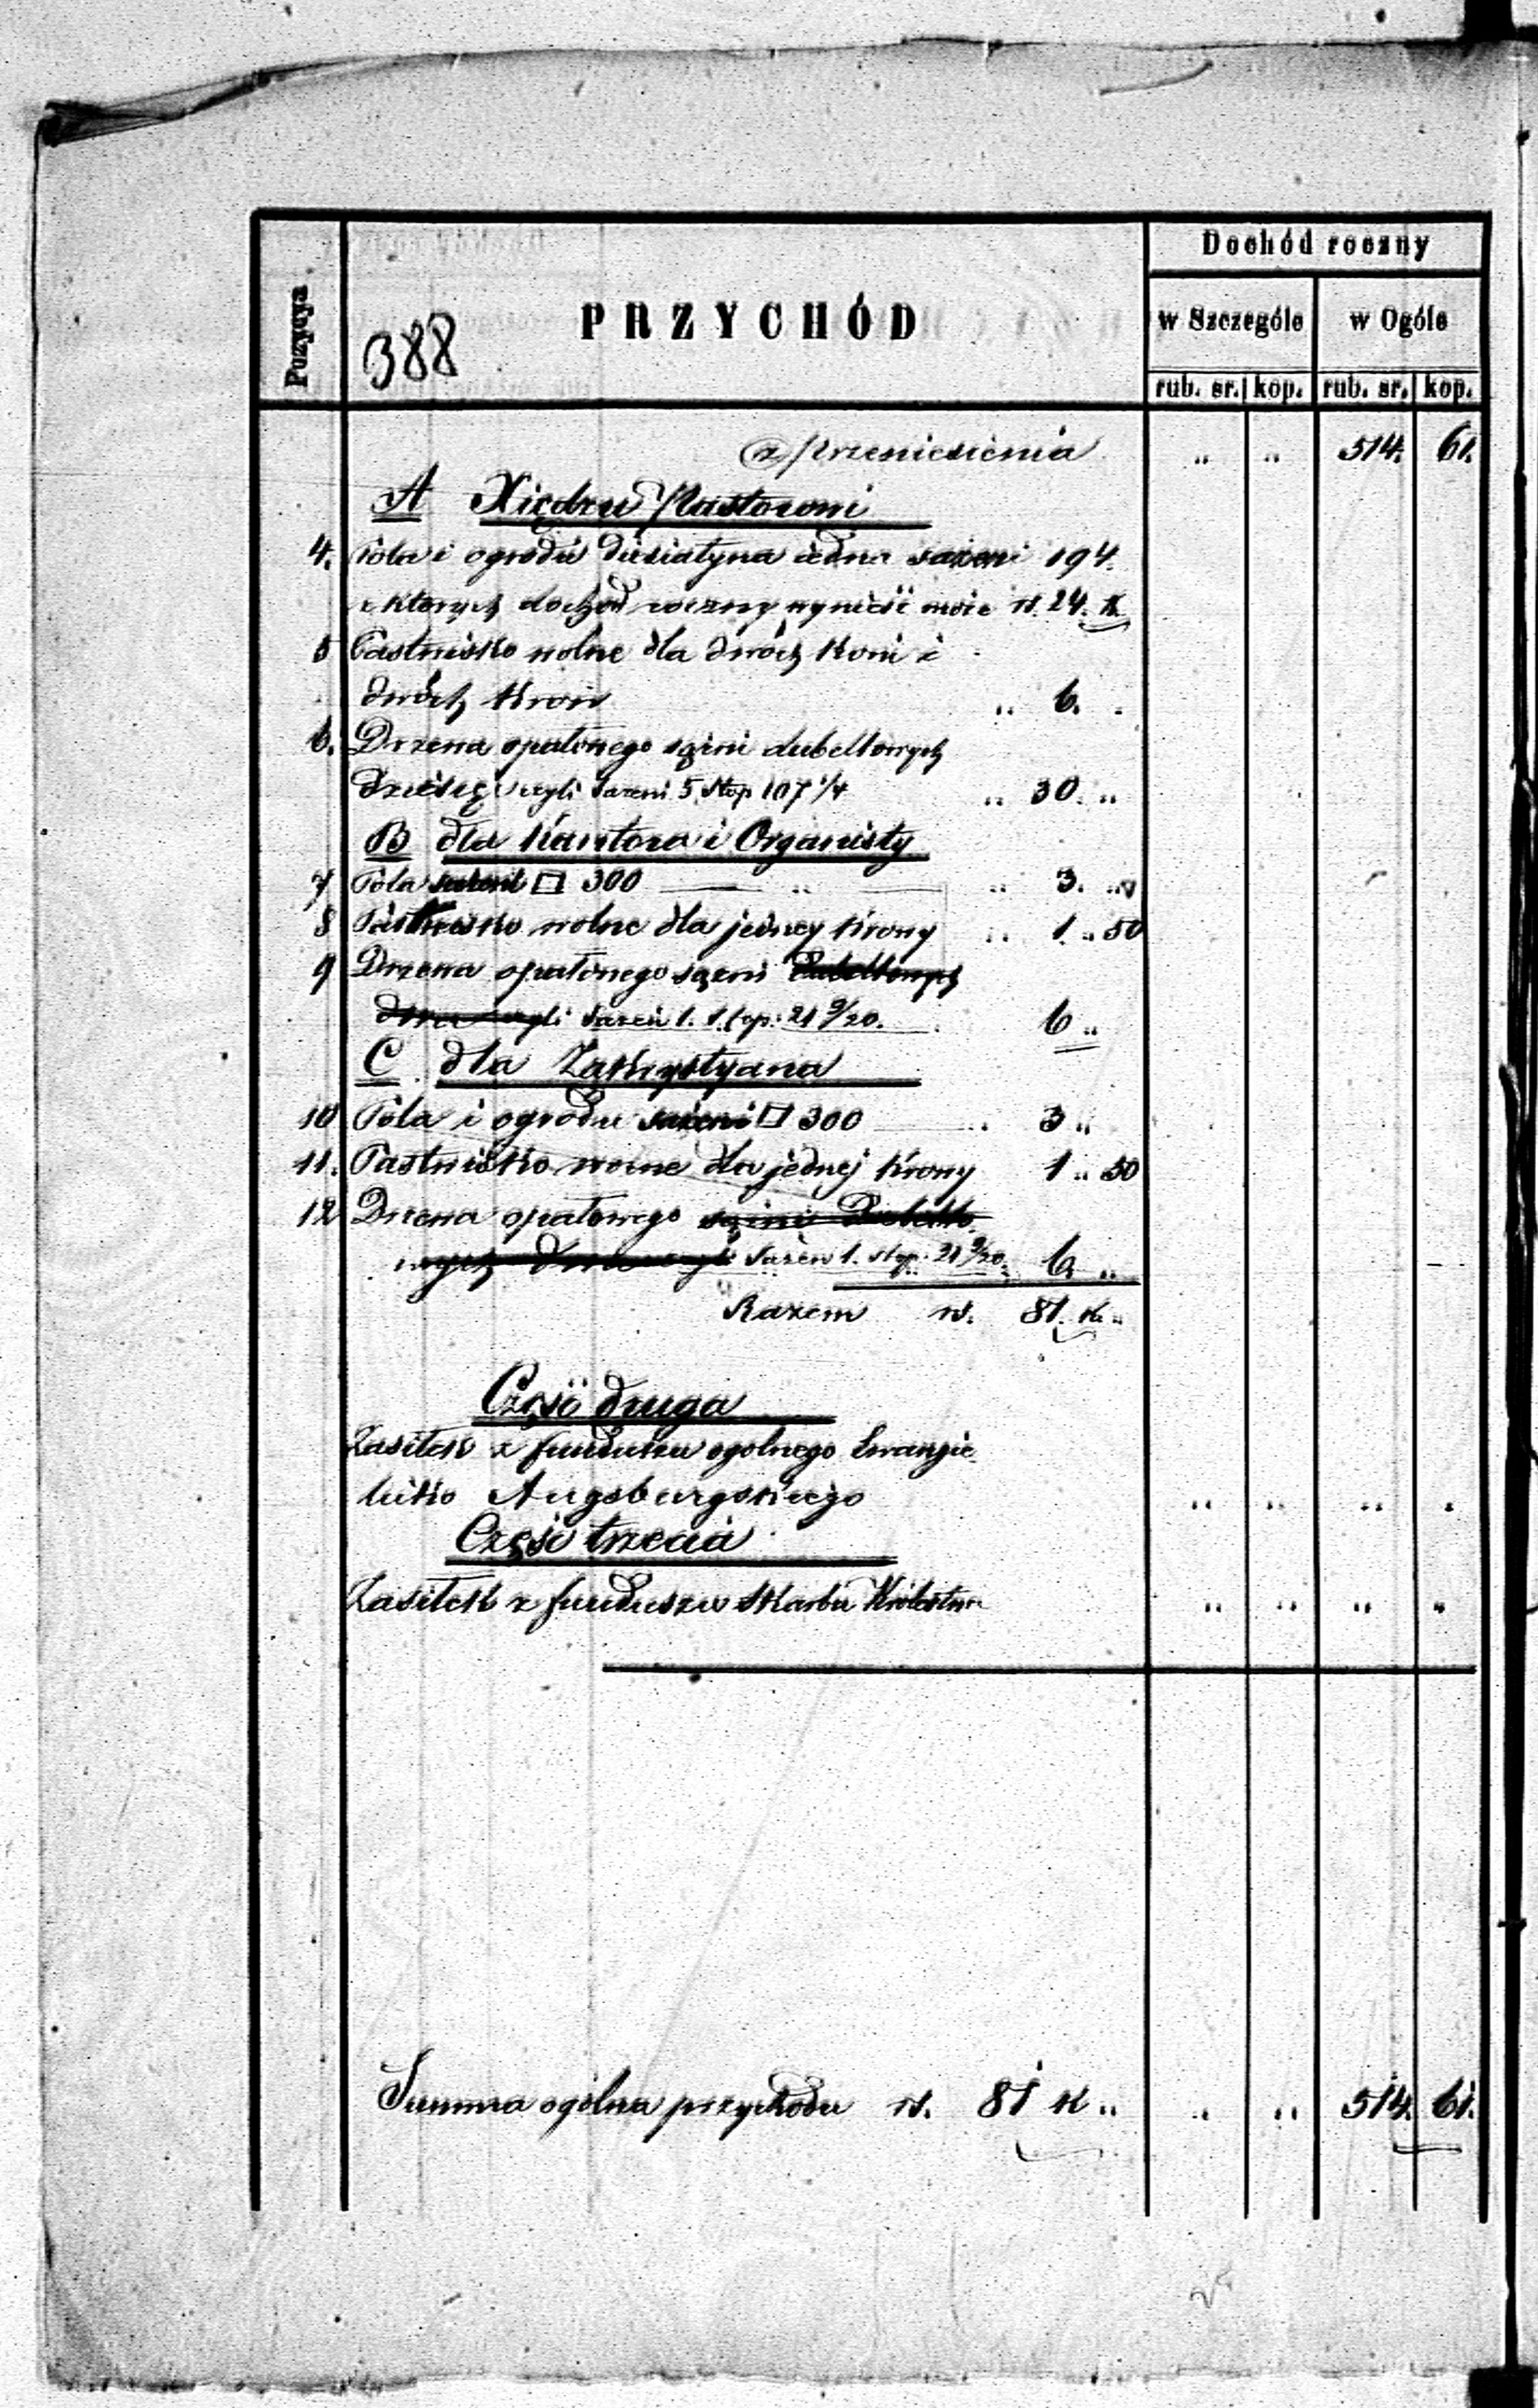 Dochód roczny
Pozycya
388
PRZYCHÓD
w Szczególe
w Ogóle
rub. sr. kop. rub. sr. kop.
z przeniesienia „ „ 514. 61.
A Xiędzu Pastorowi
4. Pola i ogrodu dziesiatyna jedna sażeni 194.
z których dochód roczny wynieść może rs. 24. k
5 Pastwisko wolne dla dwóch koni i
dwóch krów „ 6. „
6. Drzewa opałowego sążni dubeltowych
dziesięć czyli sażeni 5 stop 107 1/4 „ 30. „
B dla Kantora i Organisty
7 Pola sażeni □ 300 „ „ 3. „
8 Pastwisko wolne dla jednej krowy „ 1 „ 50
9 Drzewa opałowego sążni dubeltowych
dwa czyli sażeń 1. stop: 21 9/20. 6 „
C dla Zakrystyana
10 Pola i ogrodu sażeni □ 300 „ 3 „
11. Pastwisko wolne dla jednej krowy 1 „ 50
12 Drzewa opałowego sążni Dubelto
wych dwa czyli sażeń 1. stop. 21 9/20 6 „
Razem rs. 81. k. „
Część druga
Zasiłek z funduszu ogolnego Ewangie
licko Augsburgskiego „ „ „ „
Część trzecia
Zasiłek z funduszu Skarbu Królestwa „ „ „ „
Summa ogólna przychodu rs. 81 k „ „ „ 514. 61.